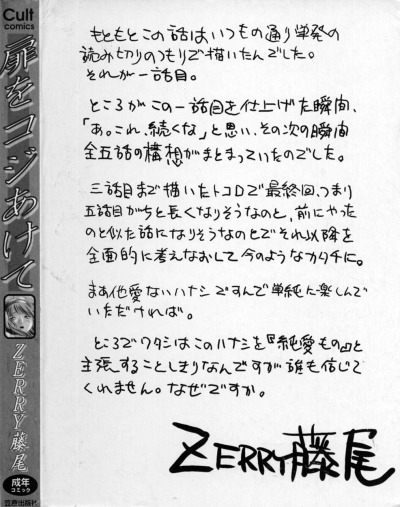 Cult
comics
扉をコジあけて
ZERRY藤尾
成年
コミック
笠倉出版社
もともとこの話は、いつもの通り単発の
読み切りのつもりで描いたんでした。
それが一話目。
ところがこの一話目を仕上げた瞬間、
「あ。これ、続くな」と思い、その次の瞬間
全五話の構想がまとまっていたのでした。
三話目まで描いたトコロで最終回、つまり
五話目がちと長くなりそうなのと、前にやった
のと似た話になりそうなのとでそれ以降を
全面的に考えなおして今のようなカタチに。
まあ他愛ないハナシですんで単純に楽しんで
いただければ。
ところでワタシはこのハナシを『純愛もの』と
主張することしきりなんですが誰も信じて
くれません。なぜですか。
ZERRY藤尾